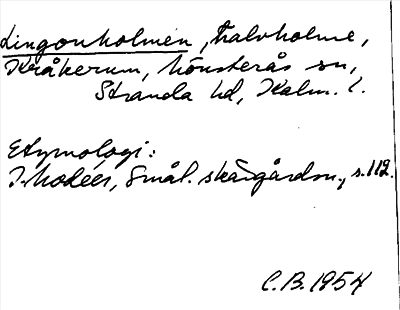 Lingonholmen, halvholme,
Kråkerum, Mönsterås sn,
Stranda hd, Kalm. l.
Etymologi:
I. Modéer, Smål. skärgårdsn., s. 112.
C.B. 1954